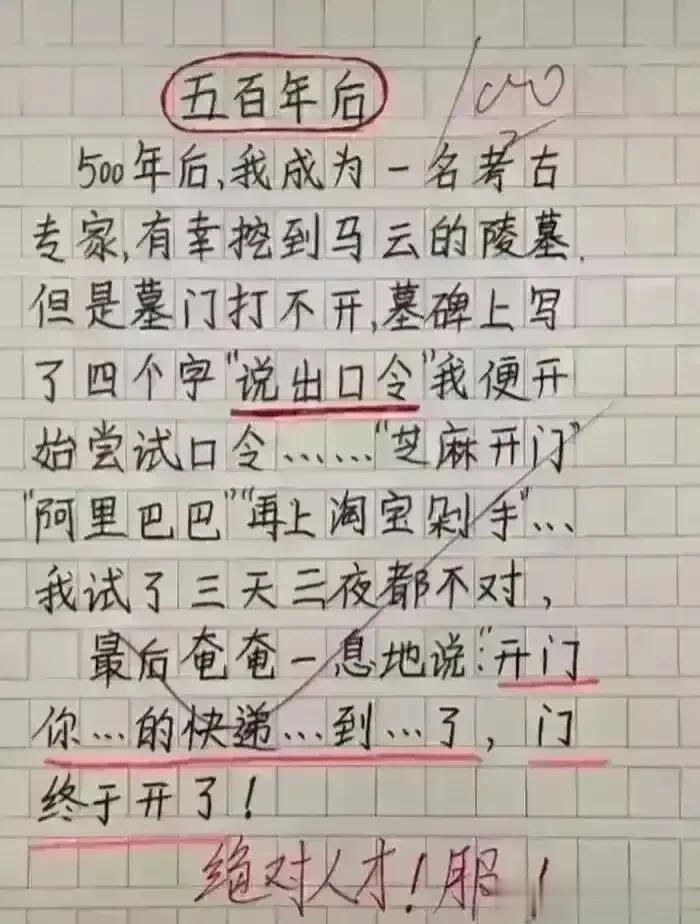 五百年后
500年后,我成为一名考古
专家,有幸挖到马云的陵墓.
但是墓门打不开,墓碑上写
了四个字"说出口令"我便开
始尝试口令……"芝麻开门"
"阿里巴巴""再上淘宝剁手"…
我试了三天三夜都不对,
最后奄奄一息地说:"开门
你…的快递…到…了,门
终于开了!
绝对人才!服!